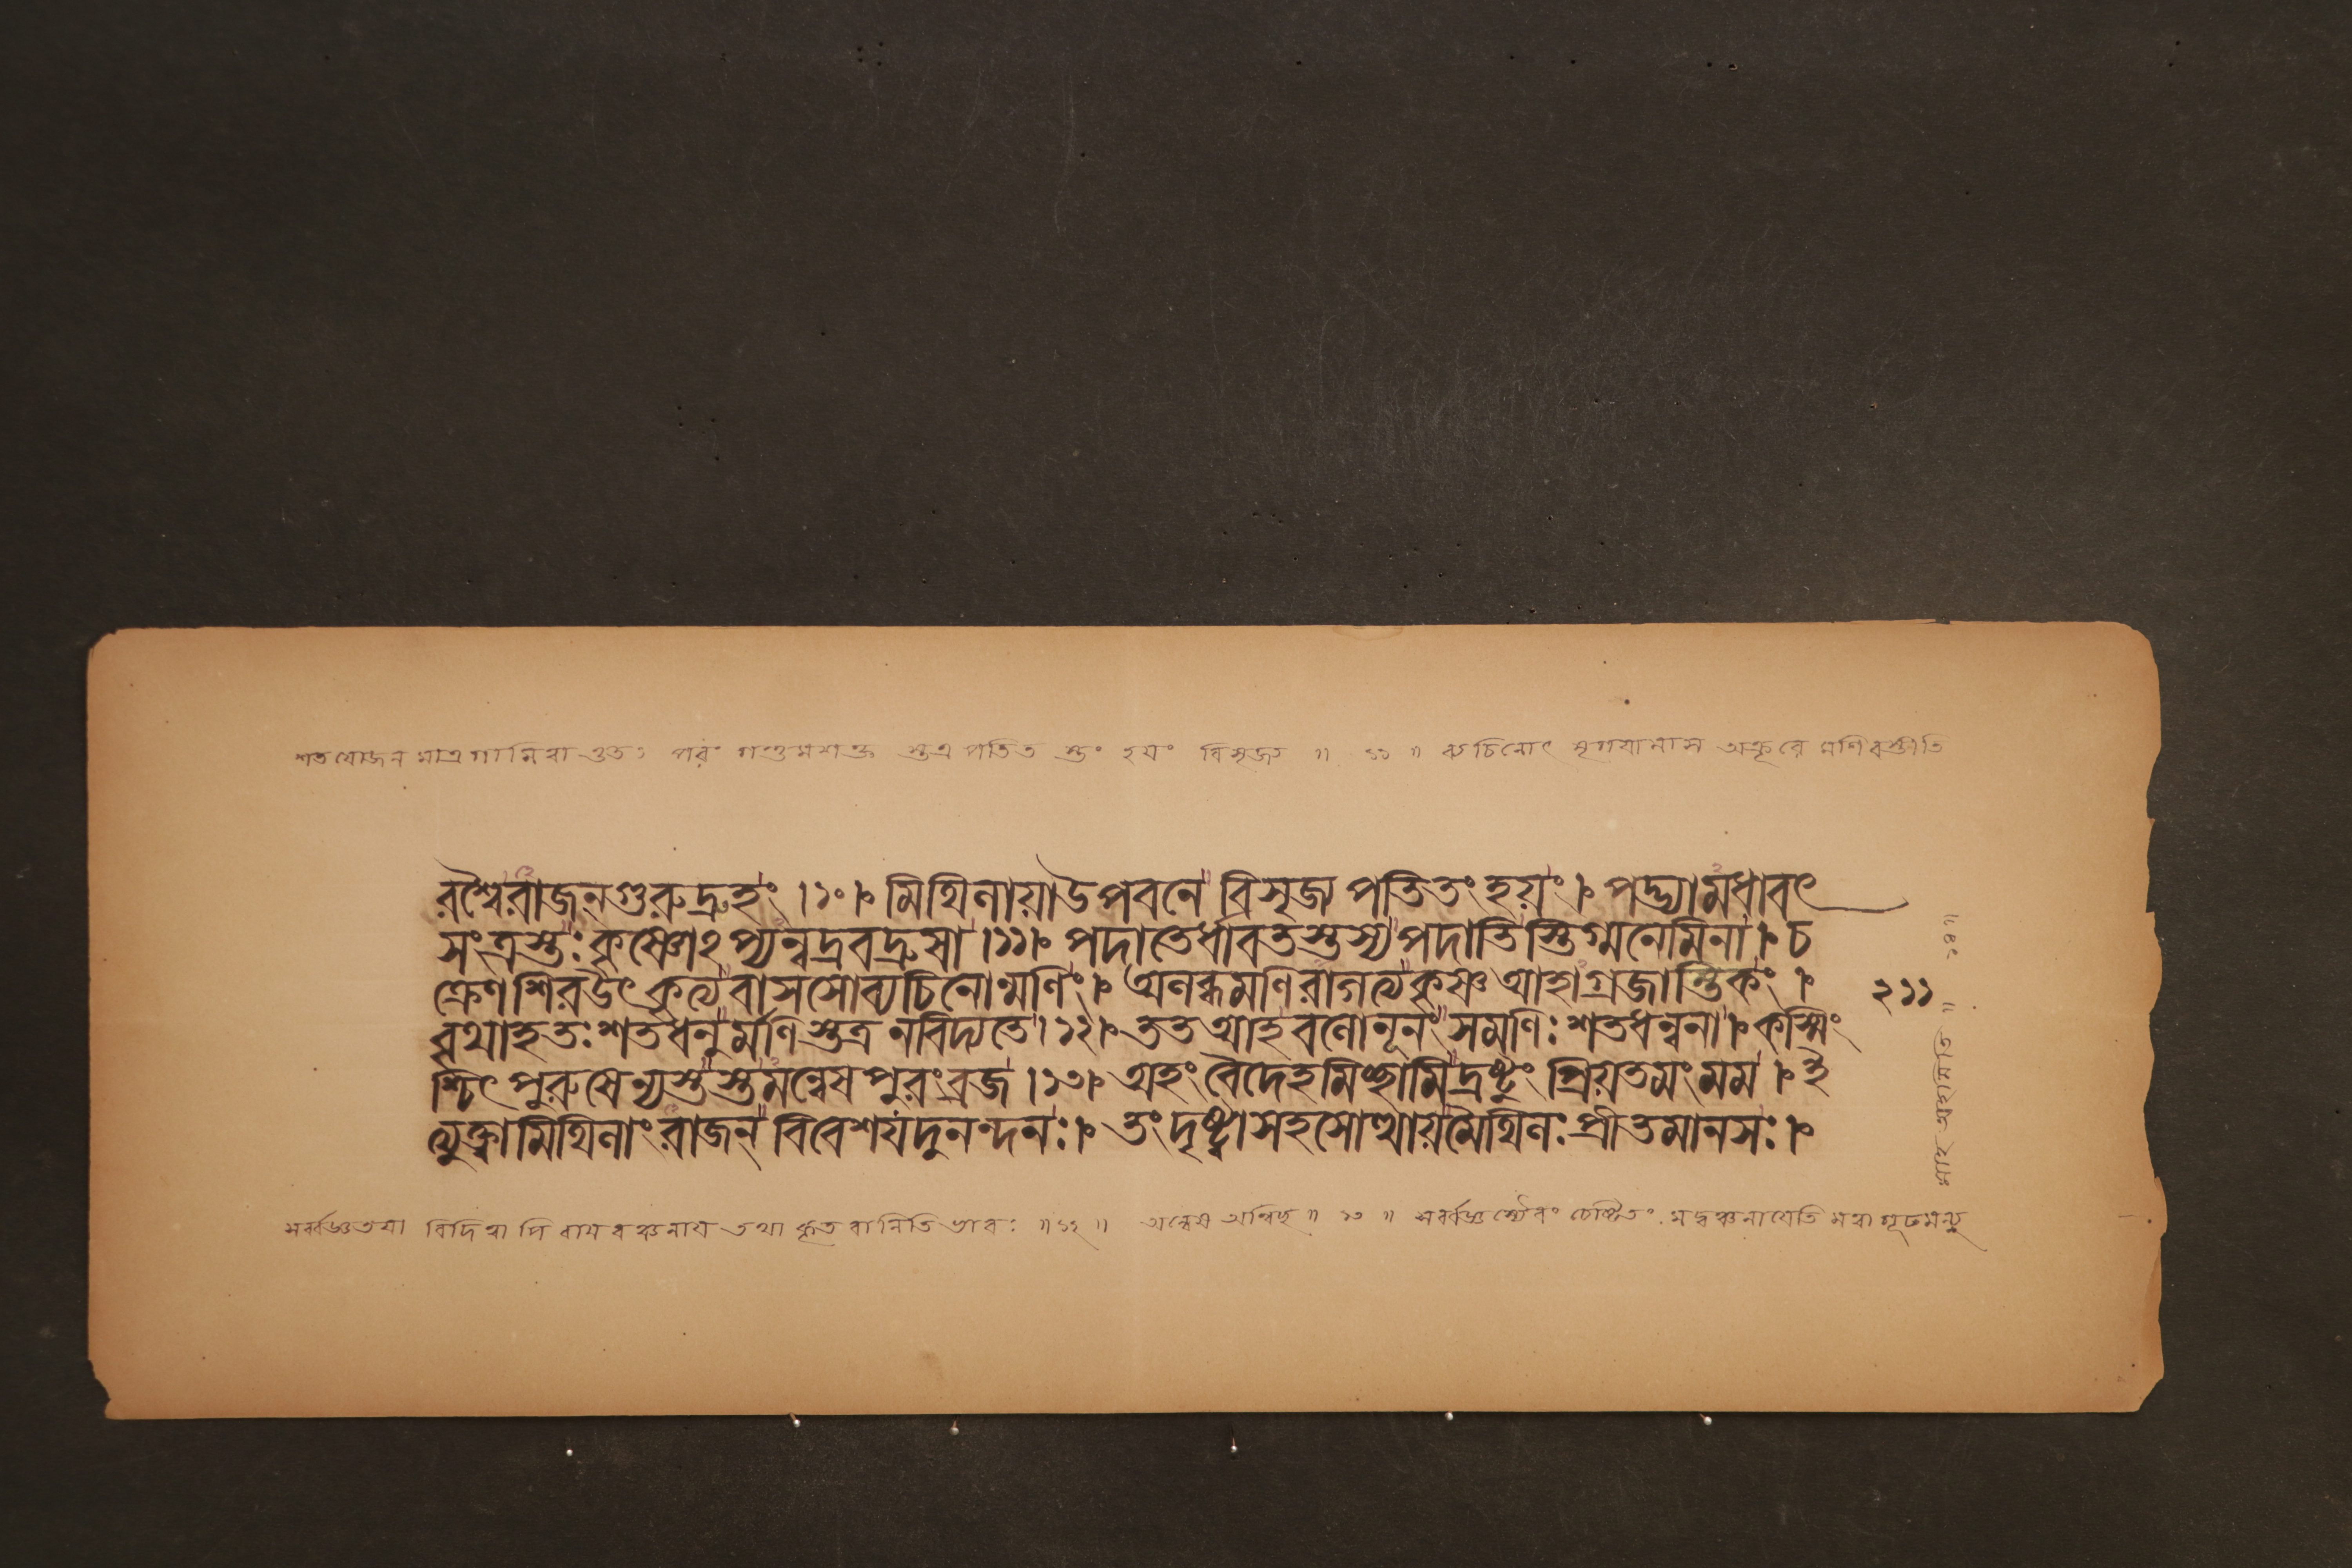 শতযোজনমাত্রগামিত্বাৎ ততঃ পরং গন্তুমশক্তং অতএব পতিতং তং হয়ং বিসৃজ্য ॥ ১১ ॥ ব্যচিনোৎ মৃগয়ামাস অক্রূরে মণিরস্তীতি
রশ্বৈরাজন্গুরুদ্রুহং ।১০।৽ মিথিলায়াউপবনে বিসৃজ্য পতিতংহয়ং ।৽ পদ্ভ্যামধাবৎ
সংত্রস্তঃকৃষ্ণোঽপ্যন্বদ্রবদ্রুষা ।১১।৽ পদাতের্ধাবতস্তস্যপদাতিস্তিগ্মনেমিনা ।৽ চ
ক্রেণশিরউৎকৃত্যবাসসোব্যচিনোন্মণিং ।৽ অলব্ধমণিরাগত্যকৃষ্ণআহাগ্রজান্তিকং ।
বৃথাহতঃশতধনুর্মণিস্তত্র নবিদ্যতে ।১২।৽ ততআহবলোনূনংসমণিঃশতধন্বনা ।৽ কস্মিং
শ্চিৎপুরুষেন্যস্তস্তমন্বেষপুরংব্রজ ।১৩।৽ অহংবৈদেহমিচ্ছামিদ্রষ্টুং প্রিয়তমংমম ।৽ ই
ত্যুক্ত্বামিথিলাংরাজন্ বিবেশযদুনন্দনঃ ।৽ তংদৃষ্ট্বাসহসোত্থায়মৈথিলঃপ্রীতমানসঃ ।৽
২১১
সর্ব্বজ্ঞতয়া বিদিত্বাপি রামবঞ্চনায় তথা কৃতবানিতি ভাবঃ ॥ ১২ ॥ অন্বেষ অন্বিচ্ছ ॥ ১৩ ॥ সর্ব্বজ্ঞস্যৈবং চেষ্টিতং মদ্বঞ্চনায়েতি মত্বা গূঢমন্যু
রাহ অহমিতি ॥ ১৪॥